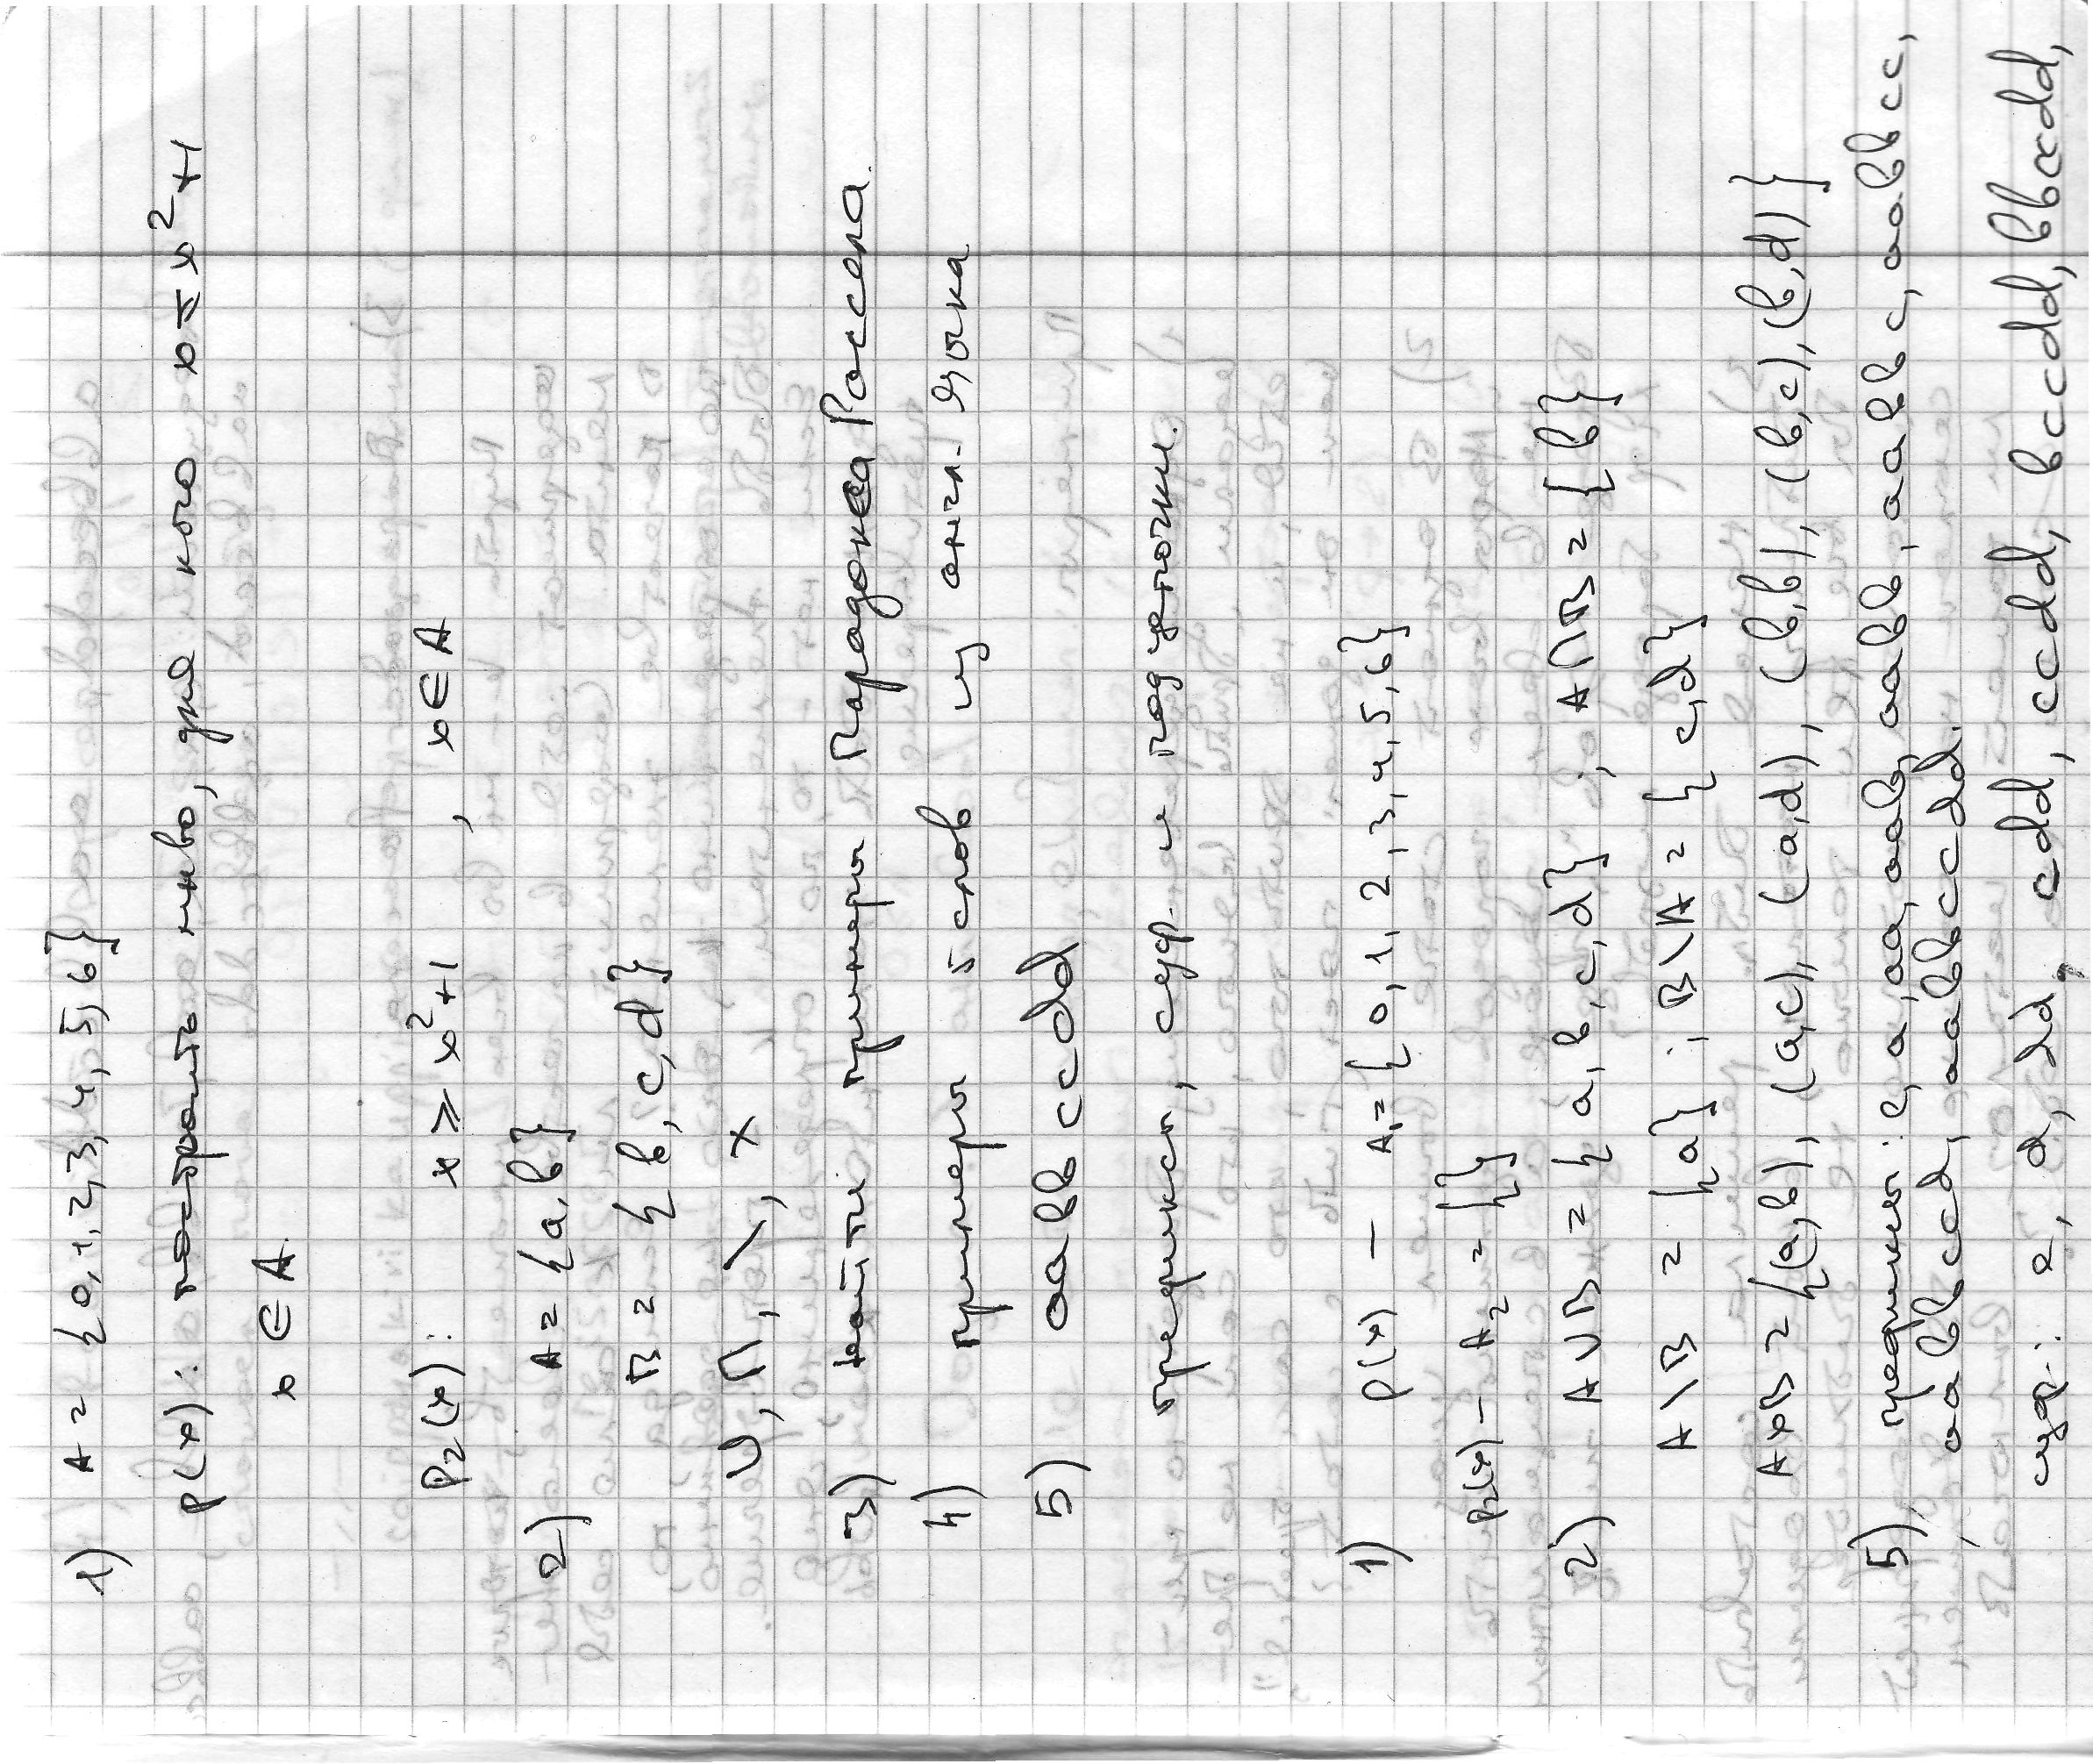 1) A = {0, 1, 2, 3, 4, 5, 6}
P(x): построить мн-во, для кого x ≤ x²+1
x ∈ A
P₂(x): x ⩾ x²+1, x ∈ A
2) A = {a, b}
B = {b, c, d}
∪, ∩, \, ×
3) найти примеры Парадокса Рассела.
4) примеры 5 слов из англ. языка
5) aabbccdd
префиксы, суф. и подцепочки.
1) P(x) – A₁ = {0, 1, 2, 3, 4, 5, 6}
P₂(x) – A₂ = {}
2) A∪B = {a, b, c, d}; A∩B = {b}
A\B = {a}; B\A = {c, d}
A×B = {(a,b), (a,c), (a,d), (b,b), (b,c), (b,d)}
5) префиксы: e, a, aa, aab, aabb, aabbc, aabbcc,
aabbccd, aabbccdd.
суф.: e, d, dd, cdd, ccdd, bccdd, bbccdd,